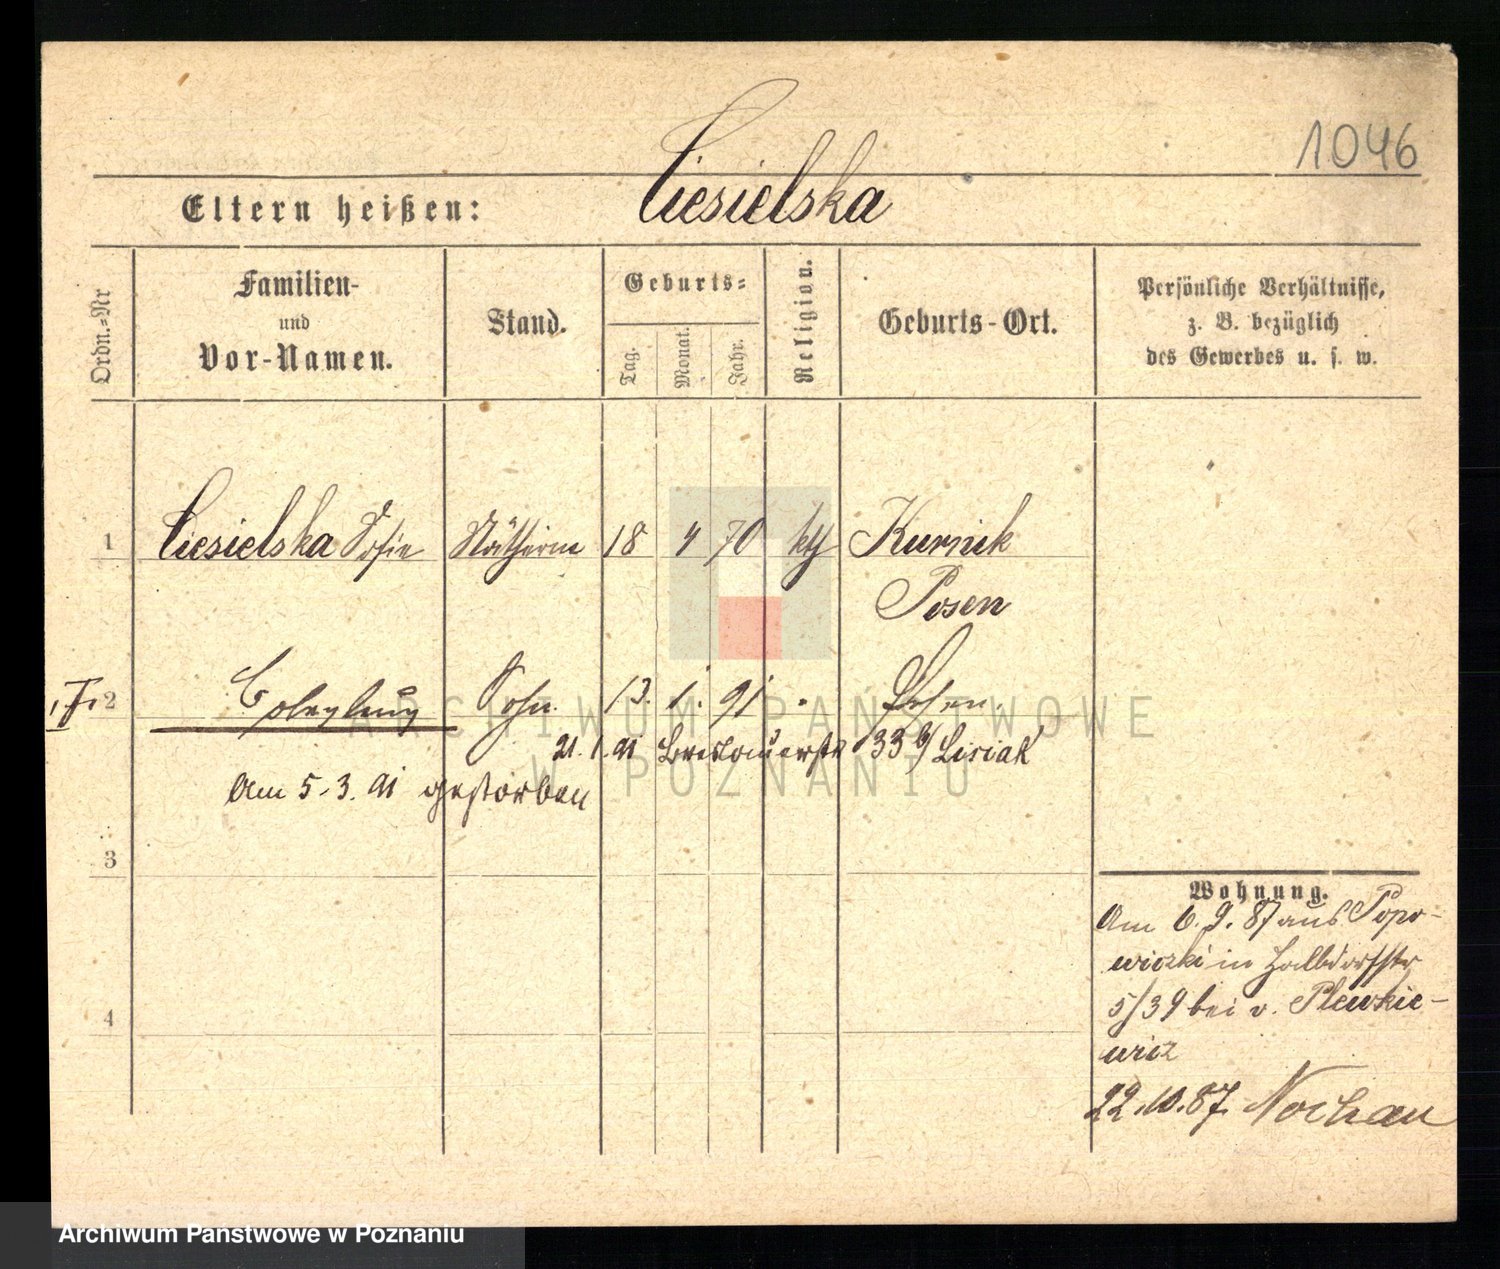 1046
Eltern heißen: Ciesielska
Ordn.=Nr
Familien-
und
Vor-Namen.
Stand.
Geburts=
Tag.
Monat.
Jahr.
Religion.
Geburts-Ort.
Persönliche Verhältnisse,
z. B. bezüglich
des Gewerbes u. s. w.
1 Ciesielska Sofie Nätherin 18 4 70 kth Kurnik
Posen
2 Sohn. 13. 1. 91 Posen.
21. 1. 91 Breslauerstr 33 b/ Lisiak
Am 5.3.91 gestorben
3
Wohnung.
Am 6.9.87 aus Popo-
wiczki in Halbdorfstr
5/39 bei v. Plewkie-
wicz
4
22.10.87. Nochau
ARCHIWUM PAŃSTWOWE
W POZNANIU
Archiwum Państwowe w Poznaniu